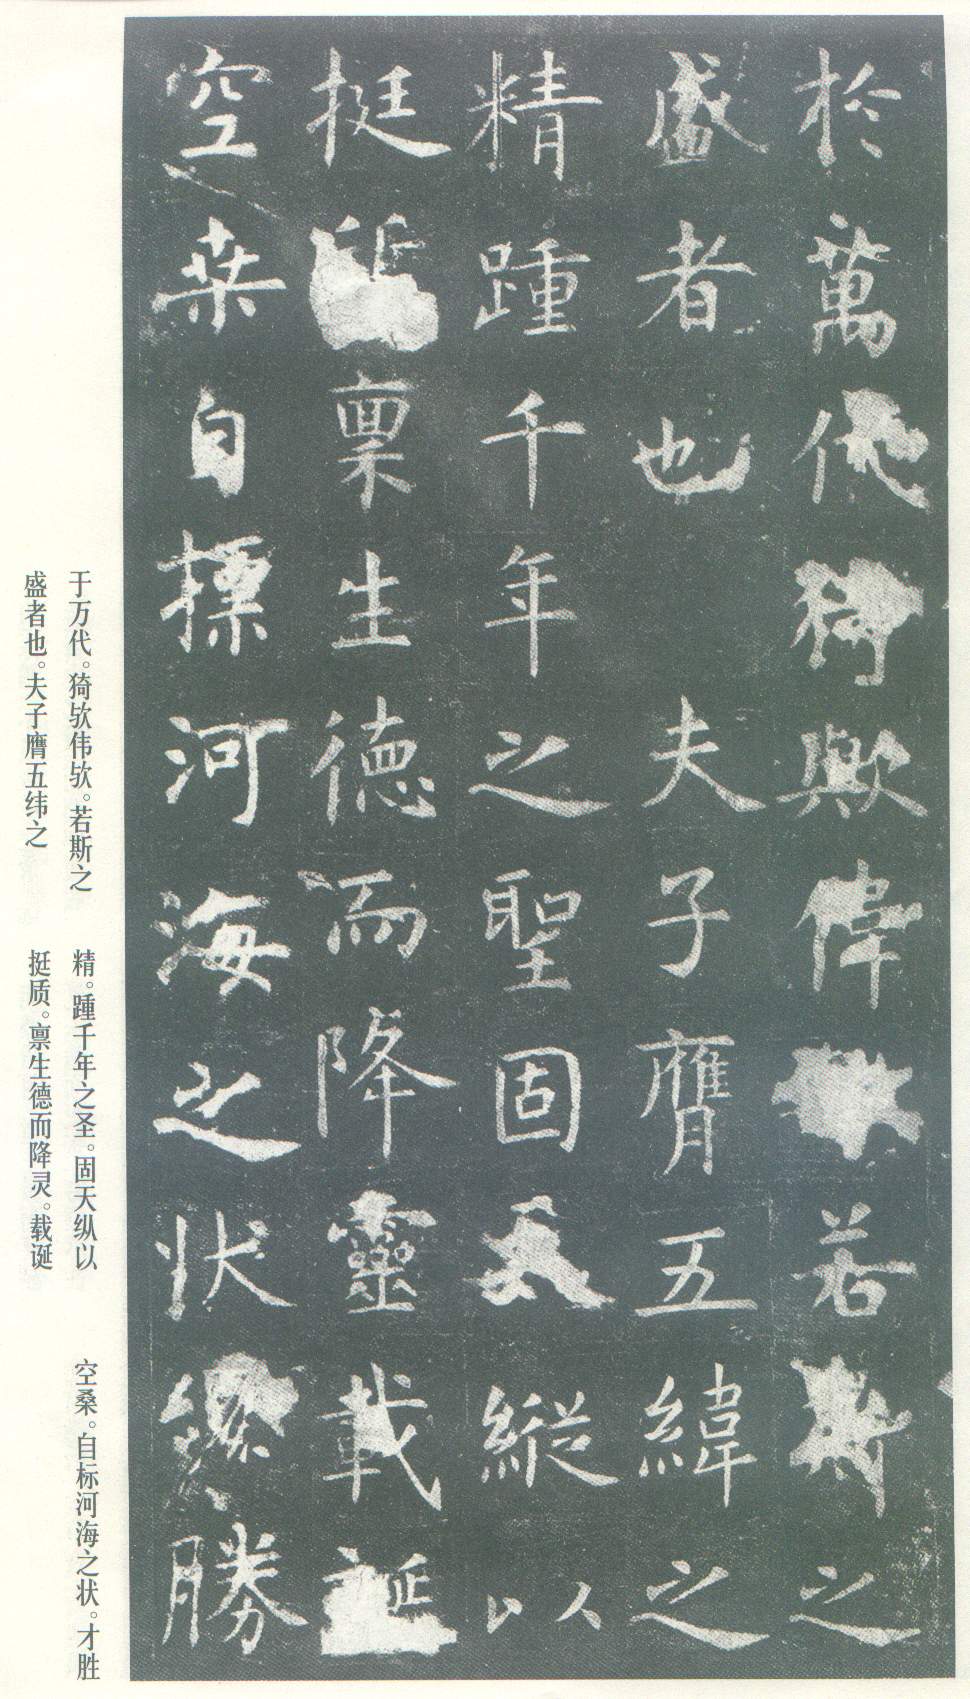 於萬代猗歟偉若斯之
盛者也夫子膺五緯之
精踵千年之聖固天縱以
挺質稟生德而降靈載誕
空桒自摽河海之状纔勝
于万代。猗欤伟欤。若斯之
盛者也。夫子膺五纬之
精。踵千年之圣。固天纵以
挺质。禀生德而降灵。载诞
空桑。自标河海之状。才胜